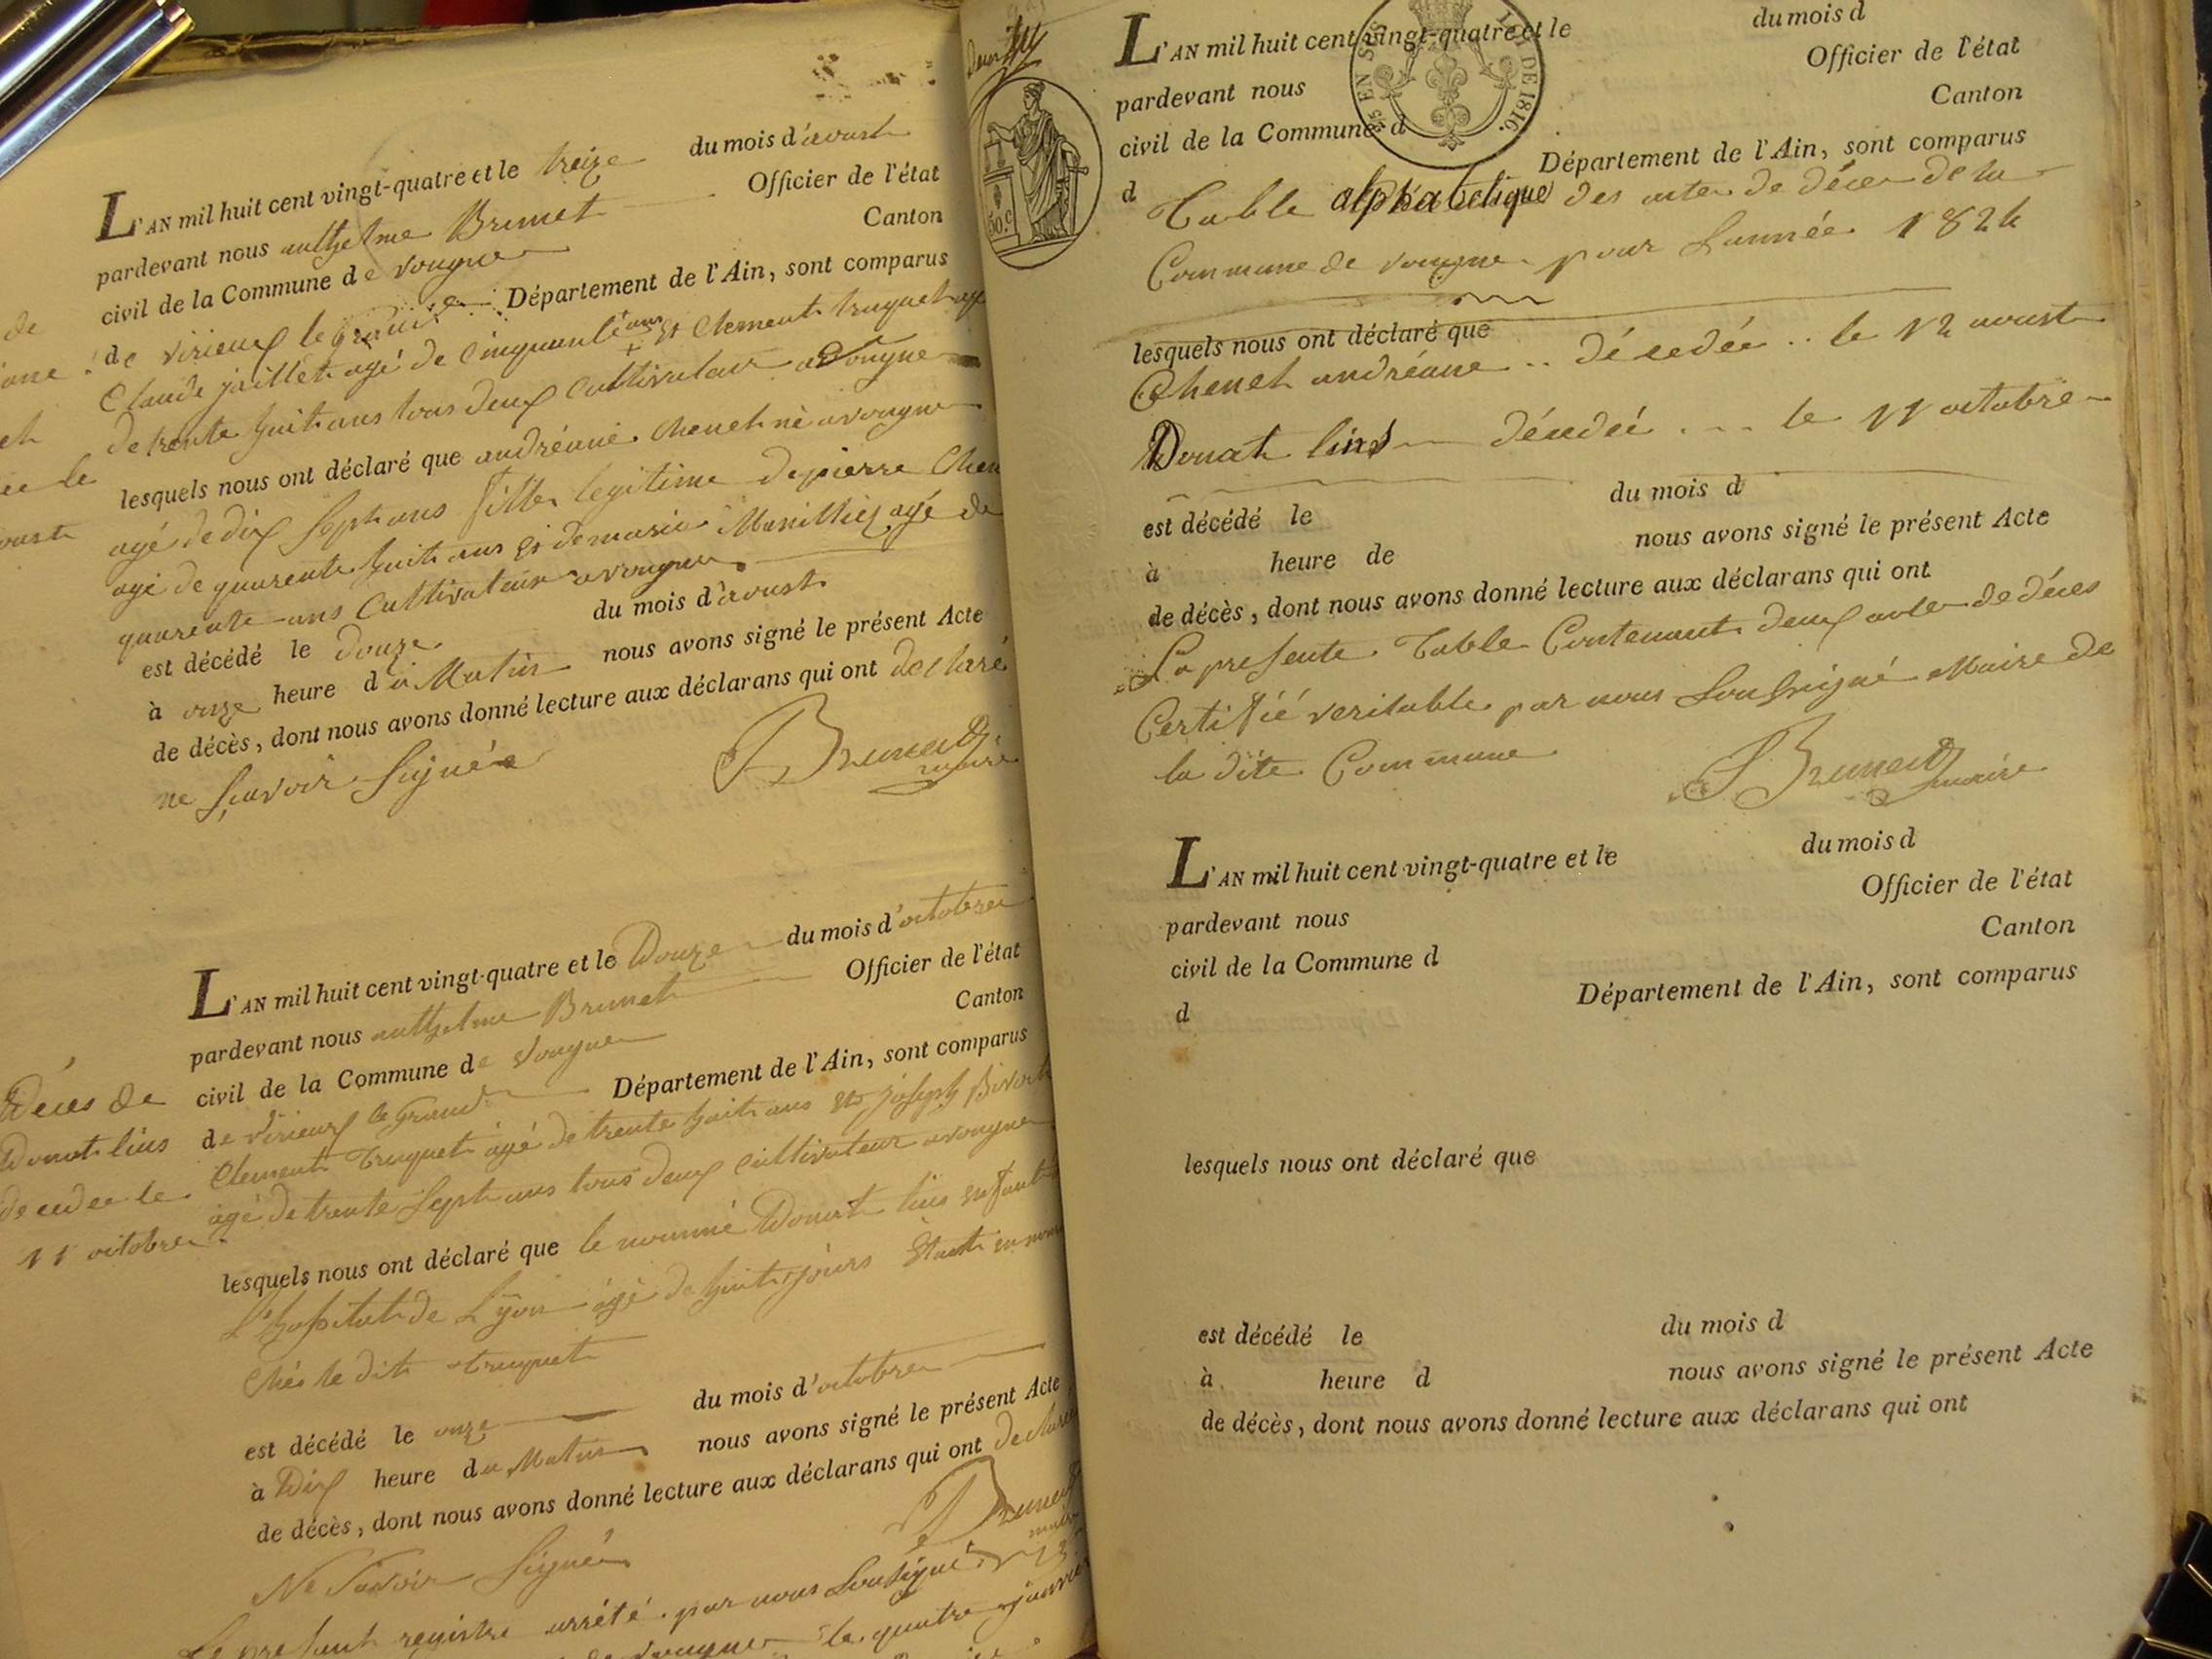 de
L'AN mil huit cent vingt-quatre et le treize du mois d'avoust
pardevant nous anthelme Brunet Officier de l'état
civil de la Commune de vongne Canton
de virieux le Grand Département de l'Ain, sont comparus
Claude juillet agé de Cinquante ans Et Clement truquet agé
de trente huit ans tous deux Cultivateur a vongne
lesquels nous ont déclaré que andréane Chenet né a vongne
agé de dix Sept ans fille legitime de pierre Chen
agé de quarente huit ans Et de marie agé de
quarente ans Cultivateur a vongne
est décédé le douze du mois d'avoust
à onze heure du Matin nous avons signé le présent Acte
de décès, dont nous avons donné lecture aux déclarans qui ont declaré
ne Sçavoir Signée
Brunet maire
L'AN mil huit cent vingt-quatre et le Douze du mois d'octobre
pardevant nous anthelme Brunet Officier de l'état
civil de la Commune de vongne Canton
de virieux le Grand Département de l'Ain, sont comparus
Clement truquet agé de trente huit ans Et joseph
agé de trente Sept ans tous deux cultivateur a vongne
lesquels nous ont déclaré que le nommé Donat lins enfant
L'hopital de Lyon agé de huit jours Etant en
Chés le dit truquet
est décédé le onze du mois d'octobre
à Dix heure du Matin nous avons signé le présent Acte
de décès, dont nous avons donné lecture aux déclarans qui ont declaré
Ne Savoir Signée
Brunet
Décés de
Donat lins
decedee le
11 octobre
Le present registre arrété par nous Sousigné
de vongne le quatre janvier
50.c
EN SUS
LOI DE 1816.
L'AN mil huit cent vingt-quatre et le du mois d
pardevant nous Officier de l'état
civil de la Commune d Canton
d Département de l'Ain, sont comparus
Table alphabetique des actes de décés de la
Commune de vongne pour L'année 1824
lesquels nous ont déclaré que
Chenet andréane .. décedée .. le 12 avoust
Donat lins décedé ... le 11 octobre
est décédé le du mois d
à heure de nous avons signé le présent Acte
de décès, dont nous avons donné lecture aux déclarans qui ont
La presente Table Contenant deux actes de décés
Certifié veritable par nous Soussigné Maire de
la dite Commune
Brunet maire
L'AN mil huit cent vingt-quatre et le du mois d
pardevant nous Officier de l'état
civil de la Commune d Canton
d Département de l'Ain, sont comparus
lesquels nous ont déclaré que
est décédé le du mois d
à heure d nous avons signé le présent Acte
de décès, dont nous avons donné lecture aux déclarans qui ont